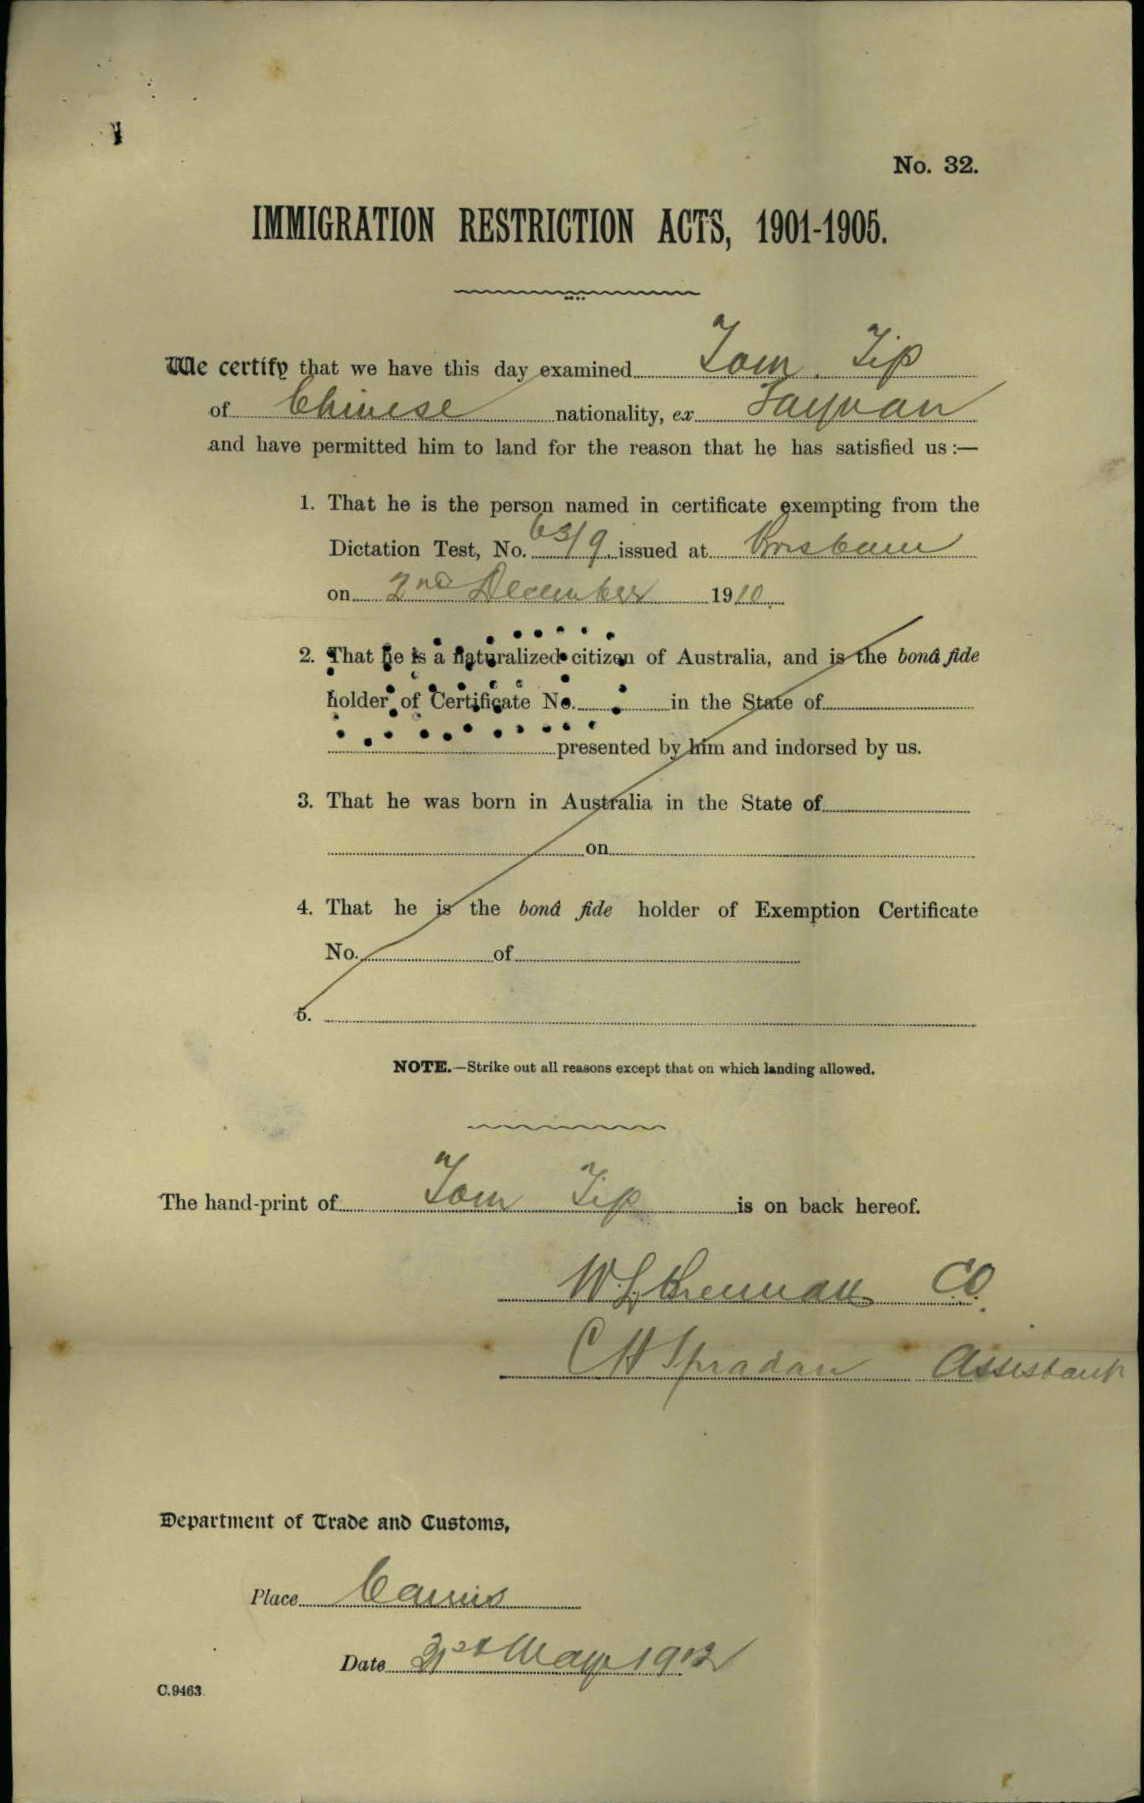 No. 32.
IMMIGRATION RESTRICTION ACTS, 1901-1905.
We certify that we have this day examined Tom Tip
of Chinese nationality, ex Taiyuan
and have permitted him to land for the reason that he has satisfied us :—
1. That he is the person named in certificate exempting from the
Dictation Test, No. 63/9 issued at Brisbane
on 2nd December 1910
2. That he is a naturalized citizen of Australia, and is the bonâ fide
holder of Certificate No. in the State of
presented by him and indorsed by us.
3. That he was born in Australia in the State of
on
4. That he is the bonâ fide holder of Exemption Certificate
No. of
5.
NOTE.—Strike out all reasons except that on which landing allowed.
The hand-print of Tom Tip is on back hereof.
CO.
C H Assistant
Department of Trade and Customs,
Place Cairns
Date 31st May 1912
C.9463.